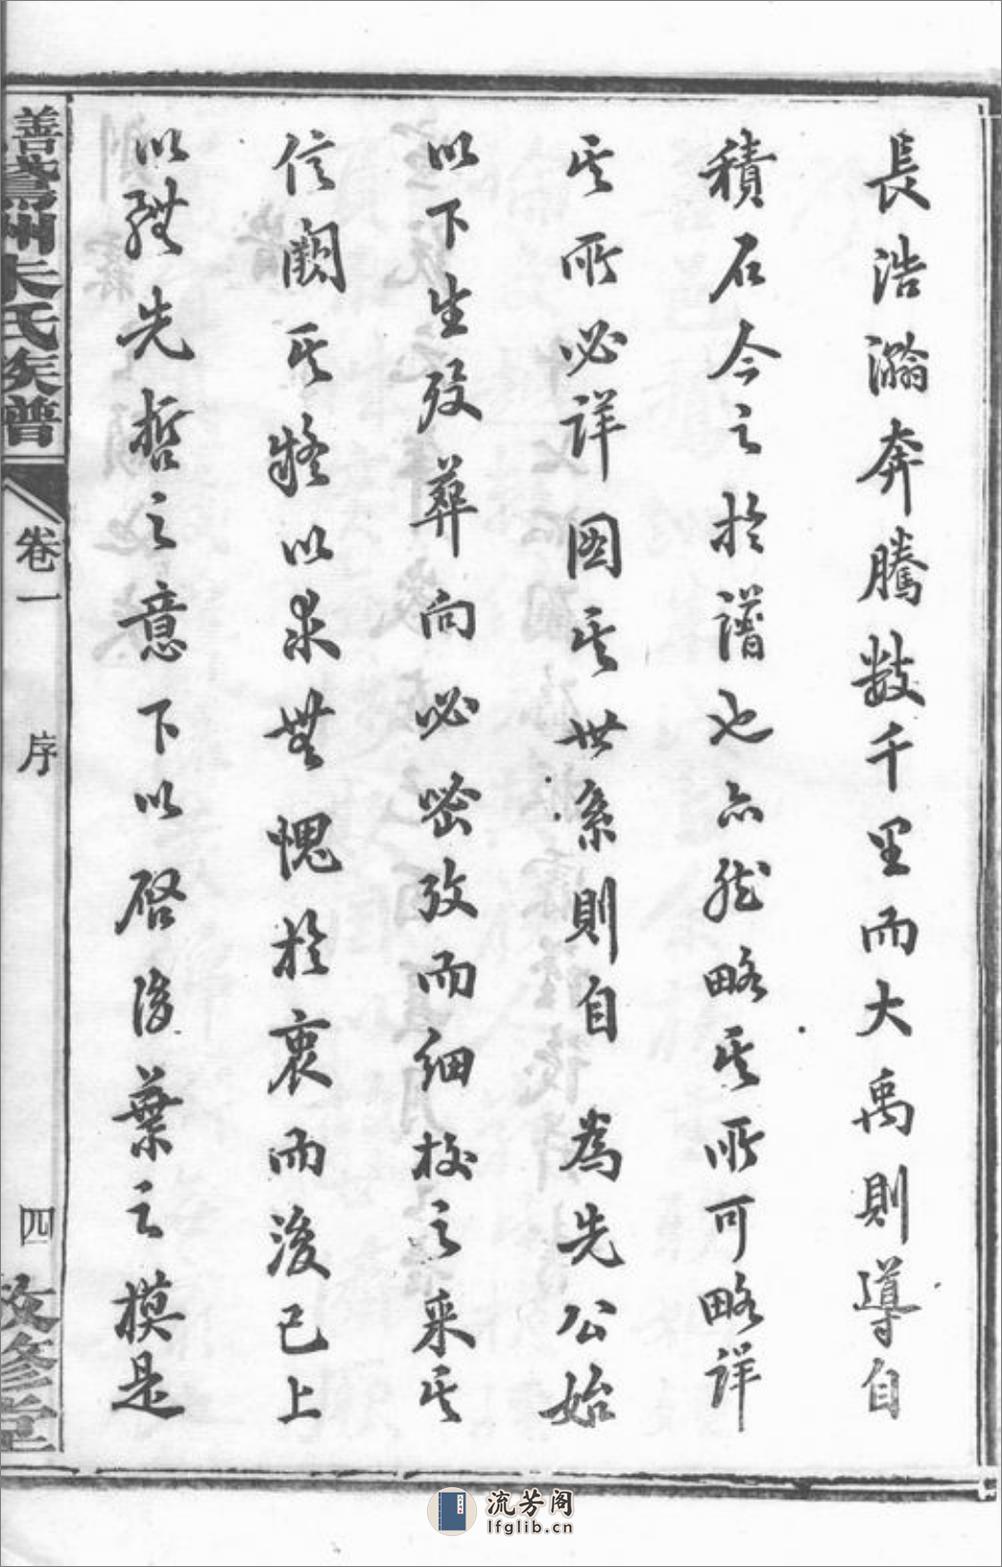 長浩瀚奔騰数千里而大禹則導自
積石今之於譜也亦然略其所可略詳
其所必詳图其世系則自 為先公始
以下生殁葬向必密攷而细校之采其
信闕其疑以求無愧於衷而後已上
以继先哲之意下以啓後葉之模是
善 州朱氏族譜
卷一
序
四
敦修堂
流芳阁
lfglib.cn